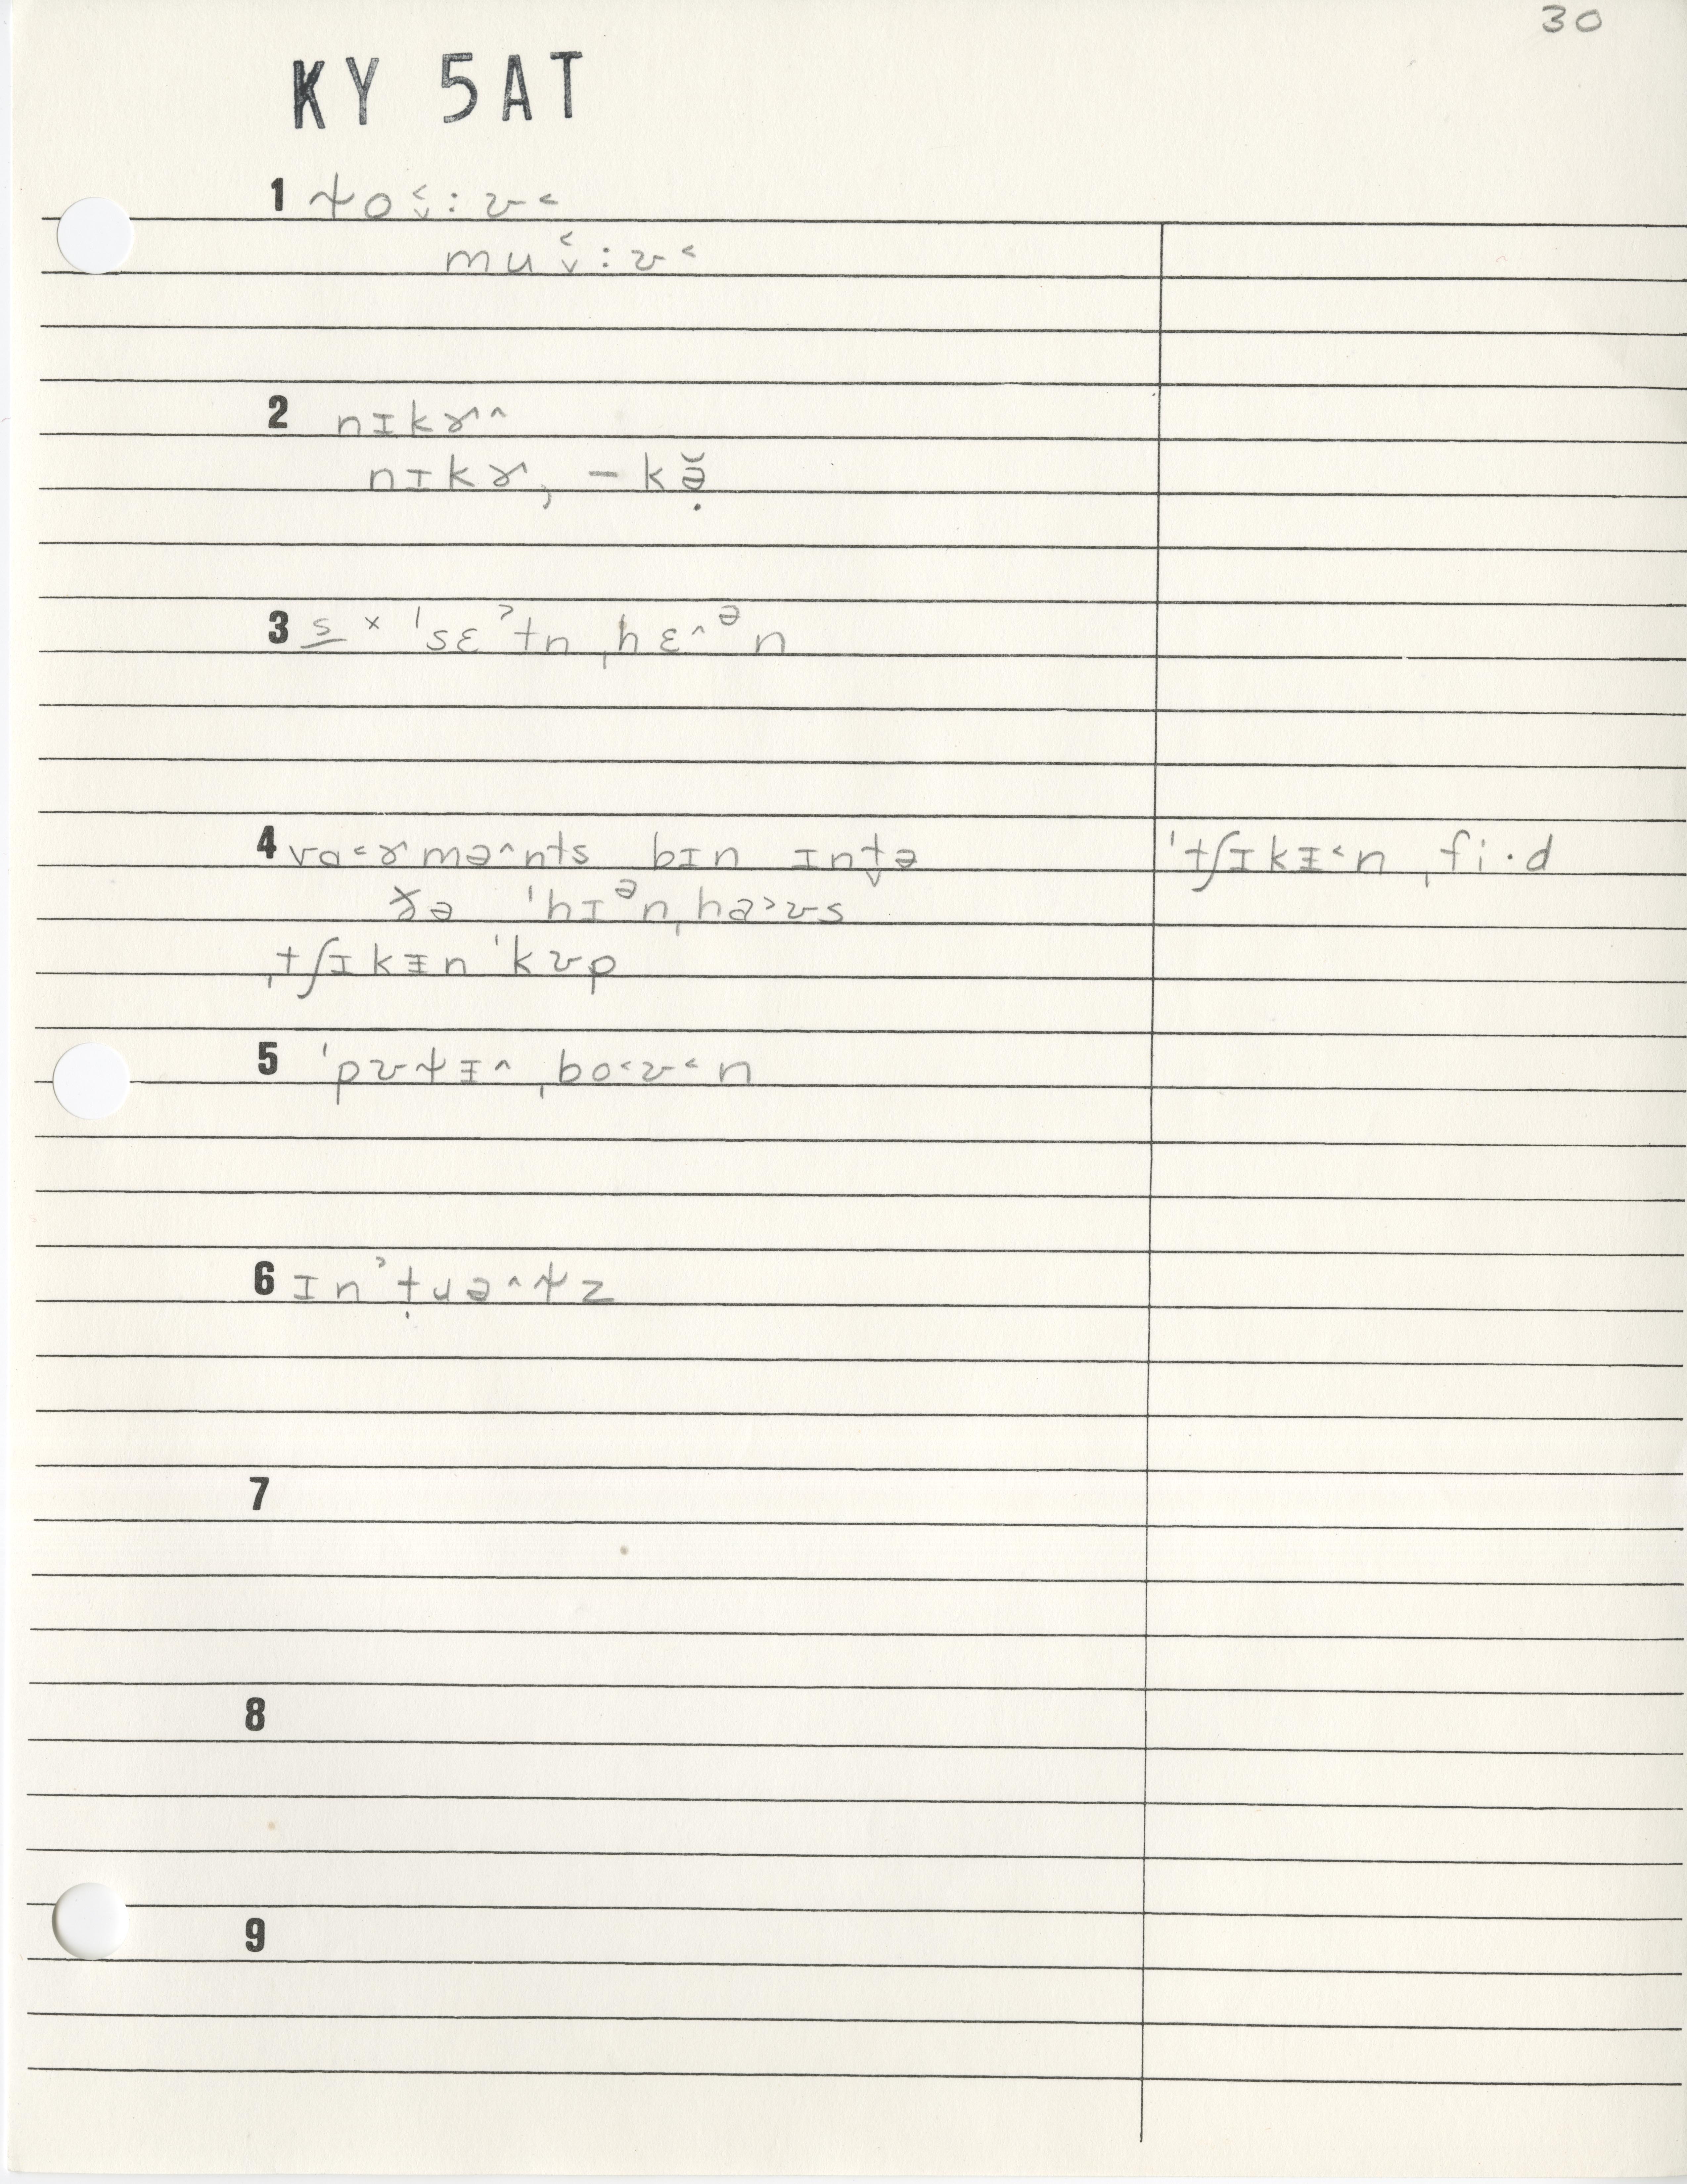 30
KY 5AT
1 ɫo˂˅:ʊ˂
mu˂˅:ʊ˂
2 nɪkɚ^
nɪkɚ, – kə̣̆
3 s̲ × ˈsɛˀtn ˌhɛ^ᵊn
4 vɑ˂ɚmə^nts bɪn ɪnt̬ə
ɤ̵ə ˈhɪᵊnˌha˃ʊs
ˌtʃɪkᵻn ˈkʊp
ˈtʃɪkᵻ˂n ˌfi·d
5 ˈpʊɫᵻ^ ˌbo˂ʊ˂n
6 ɪnˀtṛuə^ɫz
7
8
9